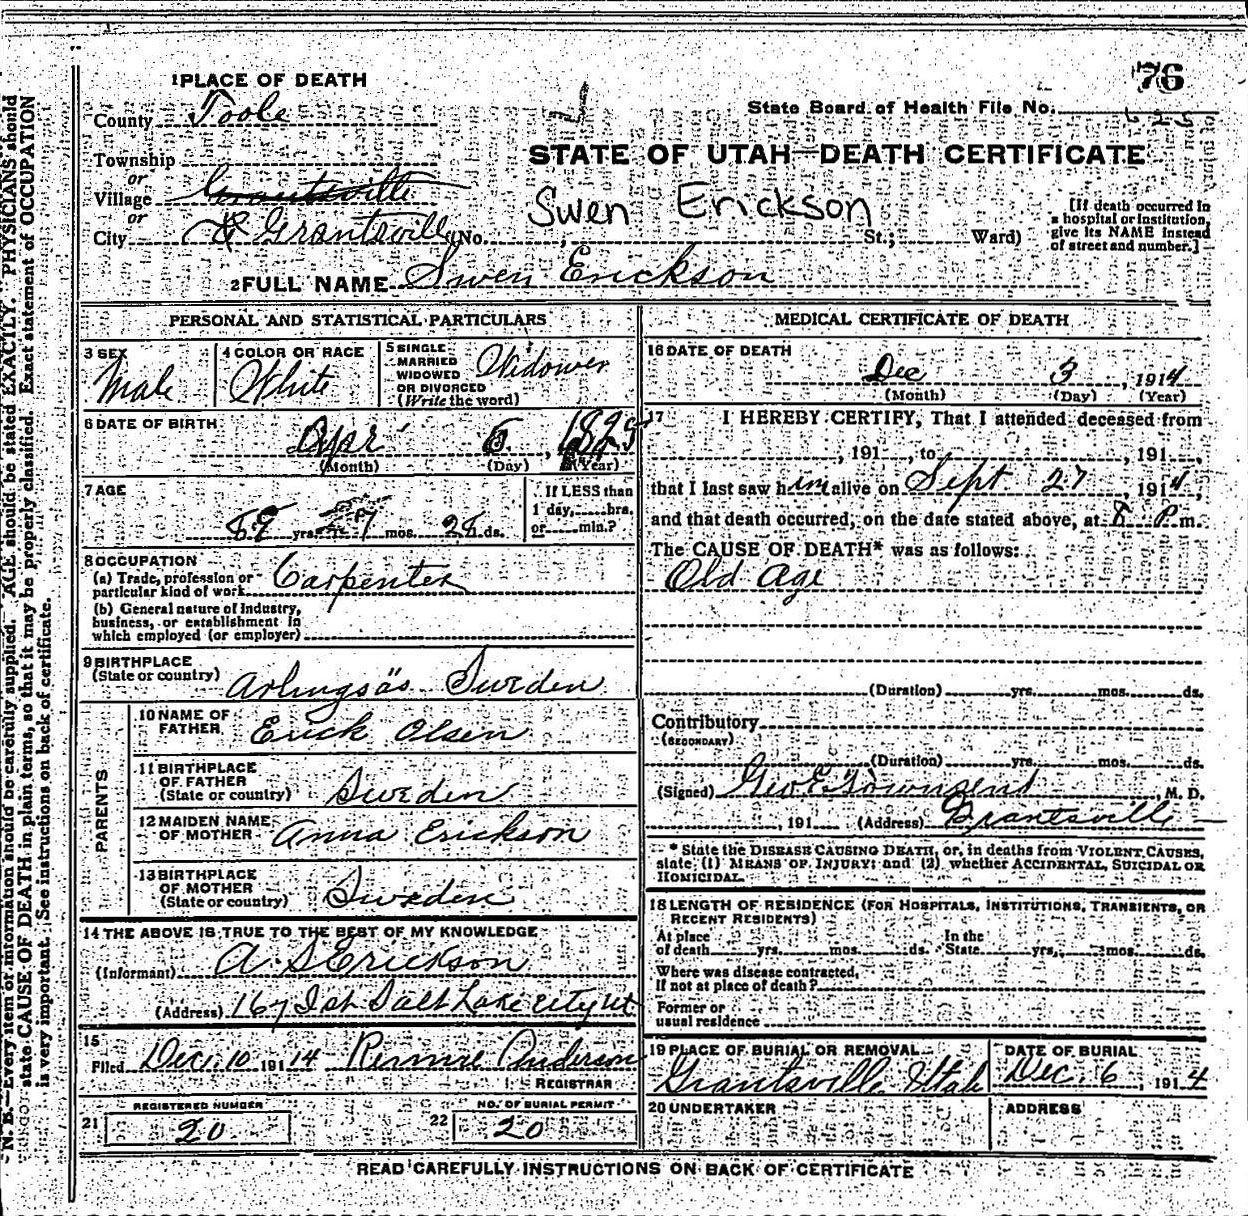 76
1 PLACE OF DEATH
County Toole
State Board of Health File No.
Township
or
STATE OF UTAH—DEATH CERTIFICATE
Village Grantsville
or
City Grantsville (No. St.; Ward)
Swen Erickson
[If death occurred in
a hospital or institution,
give its NAME instead
of street and number.]
2 FULL NAME Swen Erickson
PERSONAL AND STATISTICAL PARTICULARS
3 SEX
Male
4 COLOR OR RACE
White
5 SINGLE
MARRIED
WIDOWED
OR DIVORCED
(Write the word)
Widower
6 DATE OF BIRTH
Apr 5, 1825
(Month) (Day) (Year)
7 AGE
89 yrs. 7 mos. 28 ds.
If LESS than
1 day, hrs.
or min.?
8 OCCUPATION
(a) Trade, profession or
particular kind of work Carpenter
(b) General nature of Industry,
business, or establishment in
which employed (or employer)
9 BIRTHPLACE
(State or country) Arlingsäs Sweden
PARENTS
10 NAME OF
FATHER Erick Olsen
11 BIRTHPLACE
OF FATHER
(State or country) Sweden
12 MAIDEN NAME
OF MOTHER Anna Erickson
13 BIRTHPLACE
OF MOTHER
(State or country) Sweden
14 THE ABOVE IS TRUE TO THE BEST OF MY KNOWLEDGE
(Informant) A. S Erickson
(Address) 167 I st Salt Lake city Ut
15
Filed Dec. 10 1914 Anderson
REGISTRAR
REGISTERED NUMBER
21 20
NO. OF BURIAL PERMIT
22 20
MEDICAL CERTIFICATE OF DEATH
16 DATE OF DEATH
Dec 3, 1914
(Month) (Day) (Year)
17 I HEREBY CERTIFY, That I attended deceased from
, 191 , to , 191
that I last saw him alive on Sept 27, 1914,
and that death occurred, on the date stated above, at 8 P m.
The CAUSE OF DEATH* was as follows:
Old age
(Duration) yrs. mos. ds.
Contributory
(SECONDARY)
(Duration) yrs. mos. ds.
(Signed) Geo E. Townsend, M. D.
, 191 (Address) Grantsville
* State the DISEASE CAUSING DEATH, or, in deaths from VIOLENT CAUSES,
state (1) MEANS OF INJURY; and (2) whether ACCIDENTAL, SUICIDAL OR
HOMICIDAL.
18 LENGTH OF RESIDENCE (FOR HOSPITALS, INSTITUTIONS, TRANSIENTS, OR
RECENT RESIDENTS)
At place
of death yrs. mos. ds.
In the
State yrs. mos. ds.
Where was disease contracted,
If not at place of death?
Former or
usual residence
19 PLACE OF BURIAL OR REMOVAL
Grantsville Utah
DATE OF BURIAL
Dec. 6, 1914
20 UNDERTAKER
ADDRESS
READ CAREFULLY INSTRUCTIONS ON BACK OF CERTIFICATE
N. B.—Every item of information should be carefully supplied. AGE should be stated EXACTLY. PHYSICIANS should
state CAUSE OF DEATH in plain terms, so that it may be properly classified. Exact statement of OCCUPATION
is very important. See instructions on back of certificate.